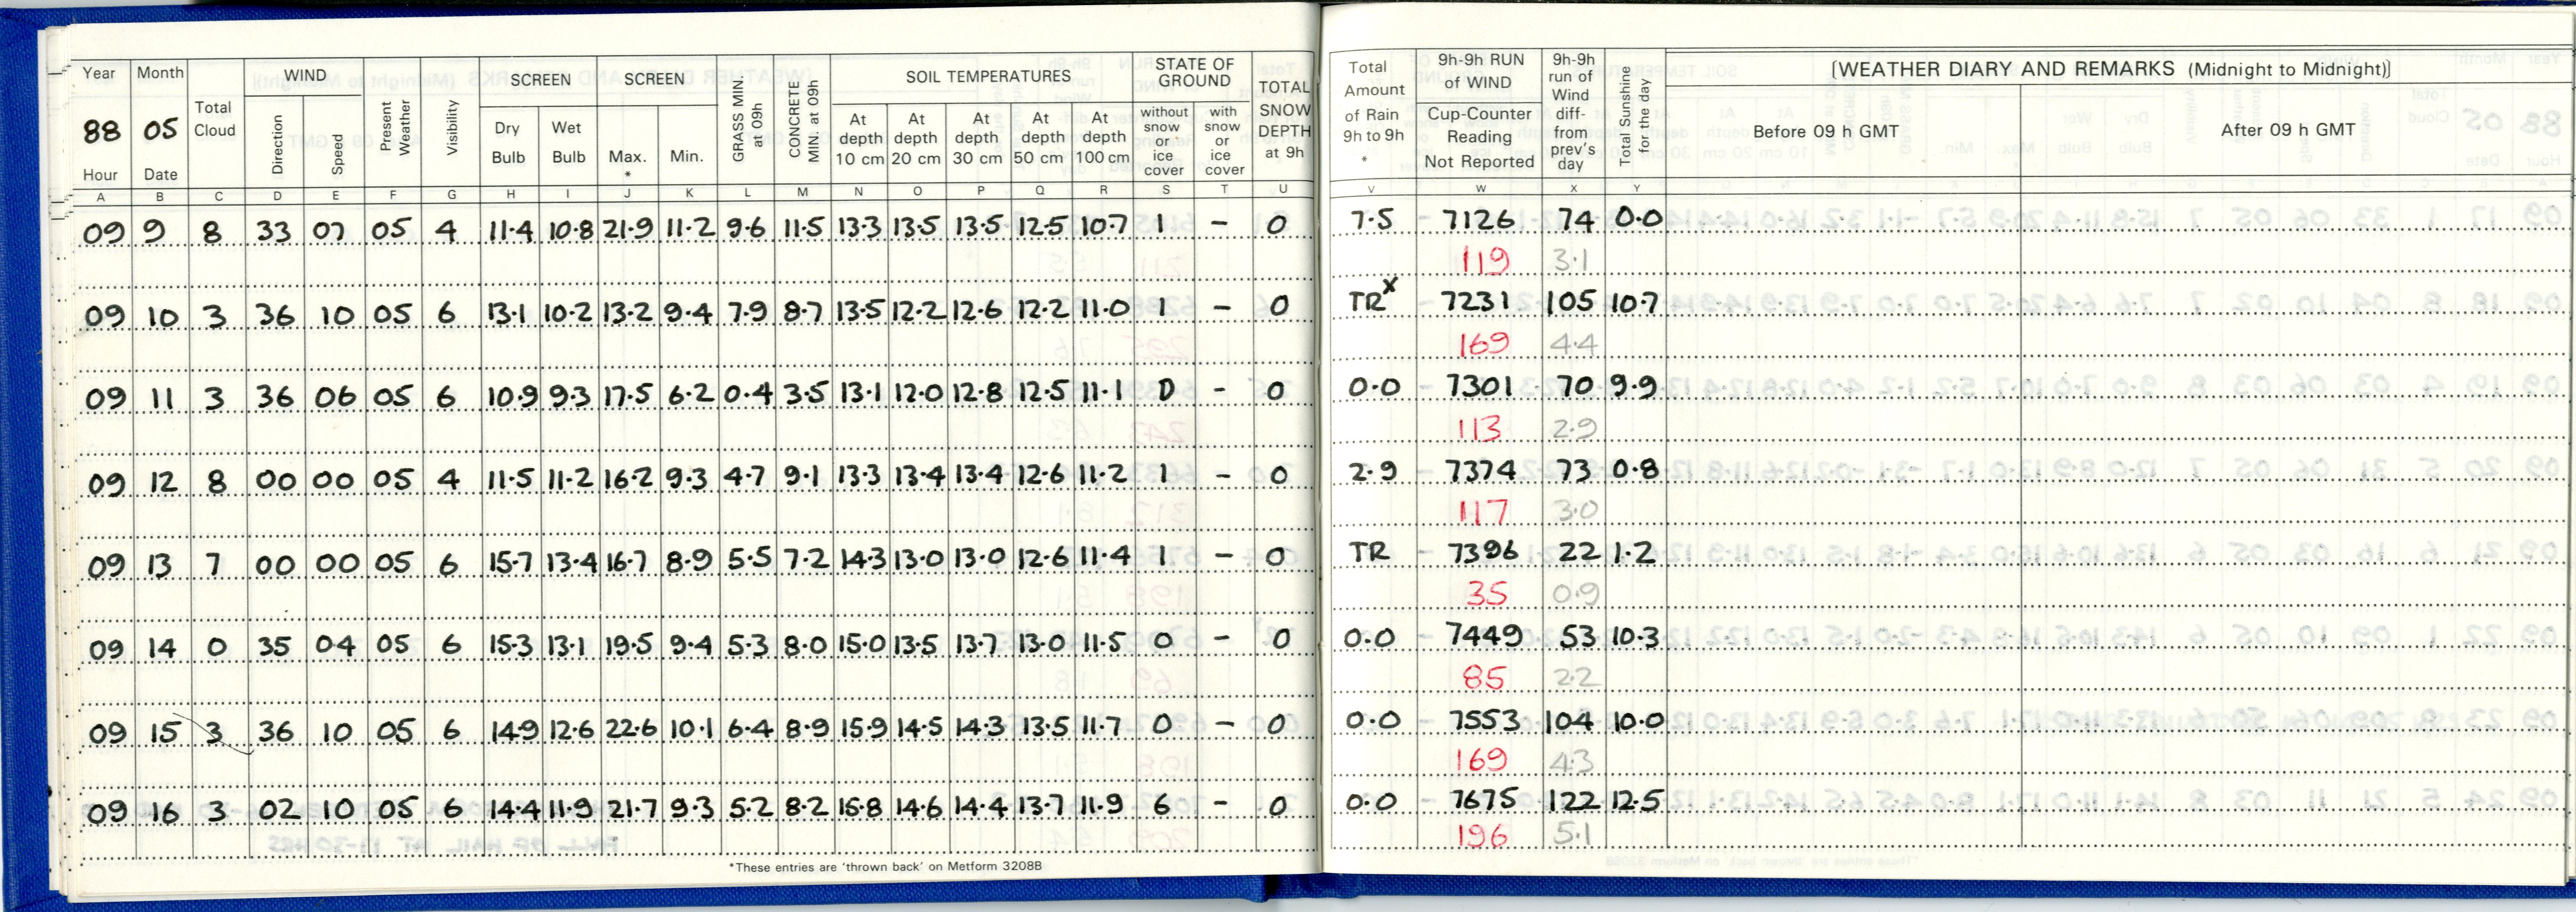 Year Month Total Cloud WIND Present Weather Visibility SCREEN SCREEN GRASS MIN at 09h CONCRETE MIN at 09h SOIL TEMPERATURES STATE OF GROUND TOTAL SNOW DEPTH at 9h Total Amount of Rain 9h to 9h * 9h-9h RUN of WIND 9h-9h run of Wind diff- from prev's day Total Sunshine for the day [WEATHER DIARY AND REMARKS (Midnight to Midnight)]
88 05 Direction Speed Dry Bulb Wet Bulb Max. * Min. At depth 10 cm At depth 20 cm At depth 30 cm At depth 50 cm At depth 100 cm without snow or ice cover with snow or ice cover Cup-Counter Reading Not Reported Before 09 h GMT After 09 h GMT
Hour Date
A B C D E F G H I J K L M N O P Q R S T U V W X Y
09 9 8 33 07 05 4 11.4 10.8 21.9 11.2 9.6 11.5 13.3 13.5 13.5 12.5 10.7 1 - 0 7.5 7126 74 0.0
119 3.1
09 10 3 36 10 05 6 13.1 10.2 13.2 9.4 7.9 8.7 13.5 12.2 12.6 12.2 11.0 1 - 0 TRx 7231 105 10.7
169 4.4
09 11 3 36 06 05 6 10.9 9.3 17.5 6.2 0.4 3.5 13.1 12.0 12.8 12.5 11.1 0 - 0 0.0 7301 70 9.9
113 2.9
09 12 8 00 00 05 4 11.5 11.2 16.2 9.3 4.7 9.1 13.3 13.4 13.4 12.6 11.2 1 - 0 2.9 7374 73 0.8
117 3.0
09 13 7 00 00 05 6 15.7 13.4 16.7 8.9 5.5 7.2 14.3 13.0 13.0 12.6 11.4 1 - 0 TR 7396 22 1.2
35 0.9
09 14 0 35 04 05 6 15.3 13.1 19.5 9.4 5.3 8.0 15.0 13.5 13.7 13.0 11.5 0 - 0 0.0 7449 53 10.3
85 2.2
09 15 3 36 10 05 6 14.9 12.6 22.6 10.1 6.4 8.9 15.9 14.5 14.3 13.5 11.7 0 - 0 0.0 7553 104 10.0
169 4.3
09 16 3 02 10 05 6 14.4 11.9 21.7 9.3 5.2 8.2 15.8 14.6 14.4 13.7 11.9 6 - 0 0.0 7675 122 12.5
196 5.1
*These entries are 'thrown back' on Metform 3208B